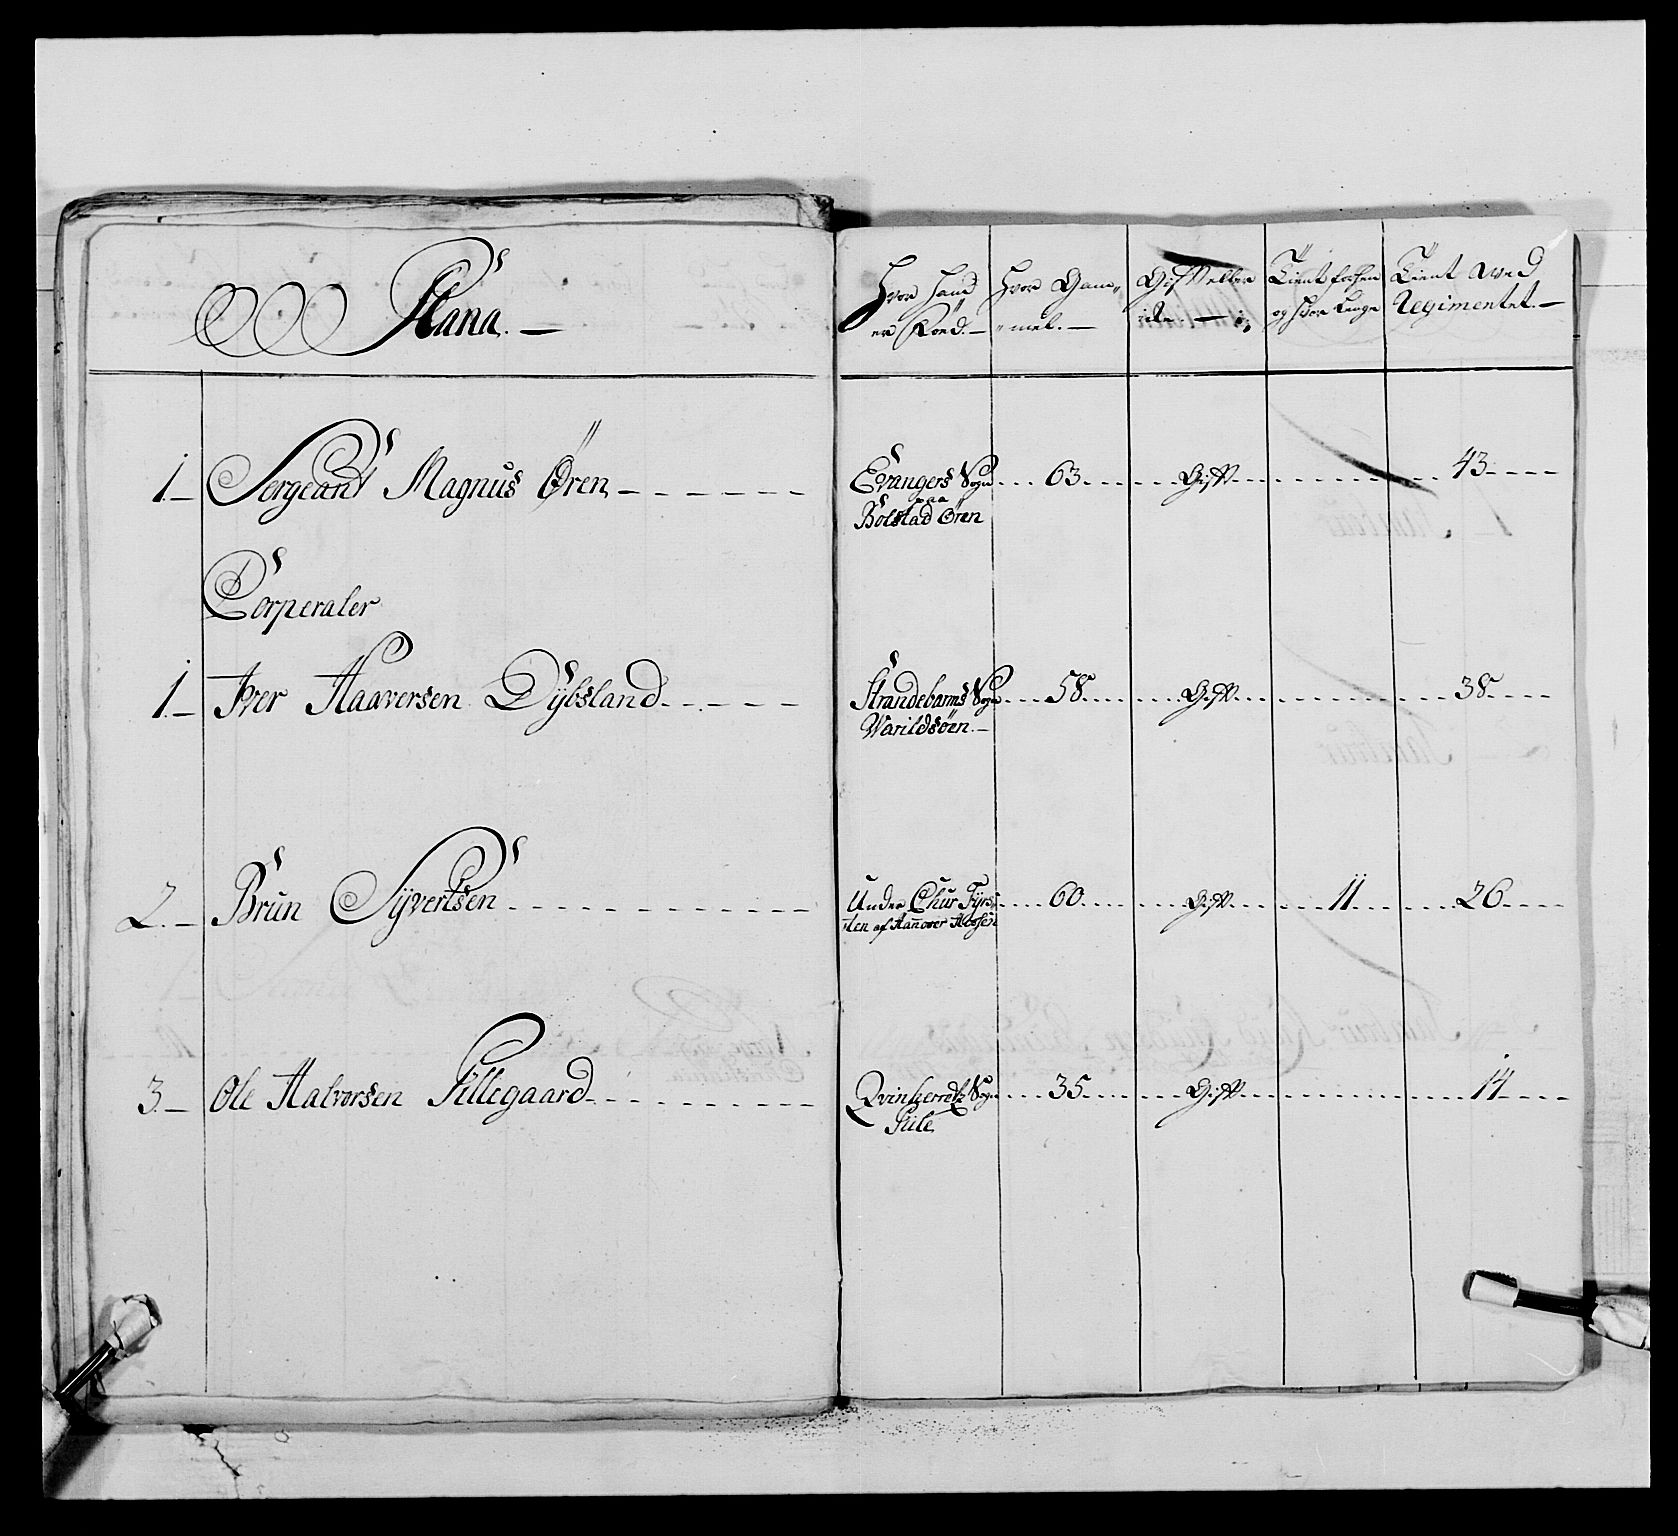 Plana. —
Hvor hand er Fød. —
Hvor Gam„ „mel. —
Gift eller icke. —
Tient forhen og hvor Længe
Tient wed Regimentet. —
1. — Sergeant Magnus Øren Evangers Sogn paa Bolstad Øren 63 Gift 43
Corperaler
1. — Iver Haaversen Dybsland Strandebarms Sogn Warildsöen. — 58 Gift 38
2. — Brun Syvertsen Under Chur Fyrs ten af Hanover 60 Gift 11 26
3. — Ole Halvorsen Pillegaard Qvinherretz Sogn 35 Gift 14